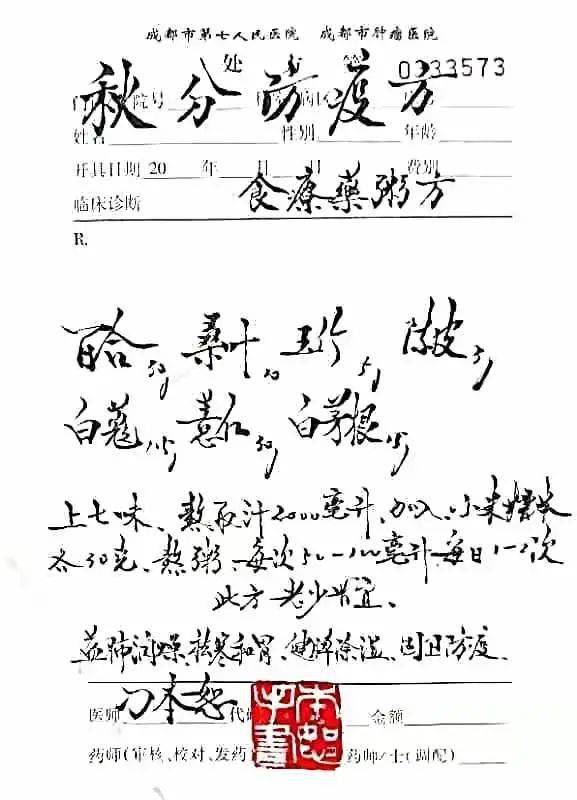 成都市第七人民医院 成都市肿瘤医院
处
秋分防疫方
院号
姓名 性别 年龄
开具日期 20 年 月 日 费别
食療藥粥方
临床诊断
R.
百合30g 桑叶10 玉竹5g 陈皮3g
白蔻1.5g 薏仁30g 白茅根15g
上七味、熬取汁2000毫升、加入小米糯米
各30克、熬粥、每次50-100毫升每日1-2次
此方老少皆宜、
益肺润燥、祛寒和胃、健脾除湿、固卫防疫、
医师 刁本恕 金额
本恕手書
药师(审核、校对、发药) 药师/士(调配)